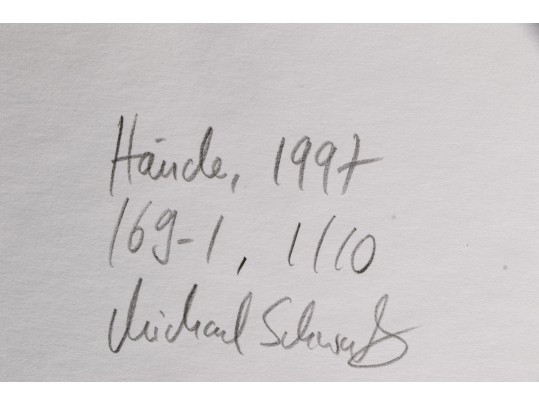 Hände, 1997
169-1, 1/10
Michael